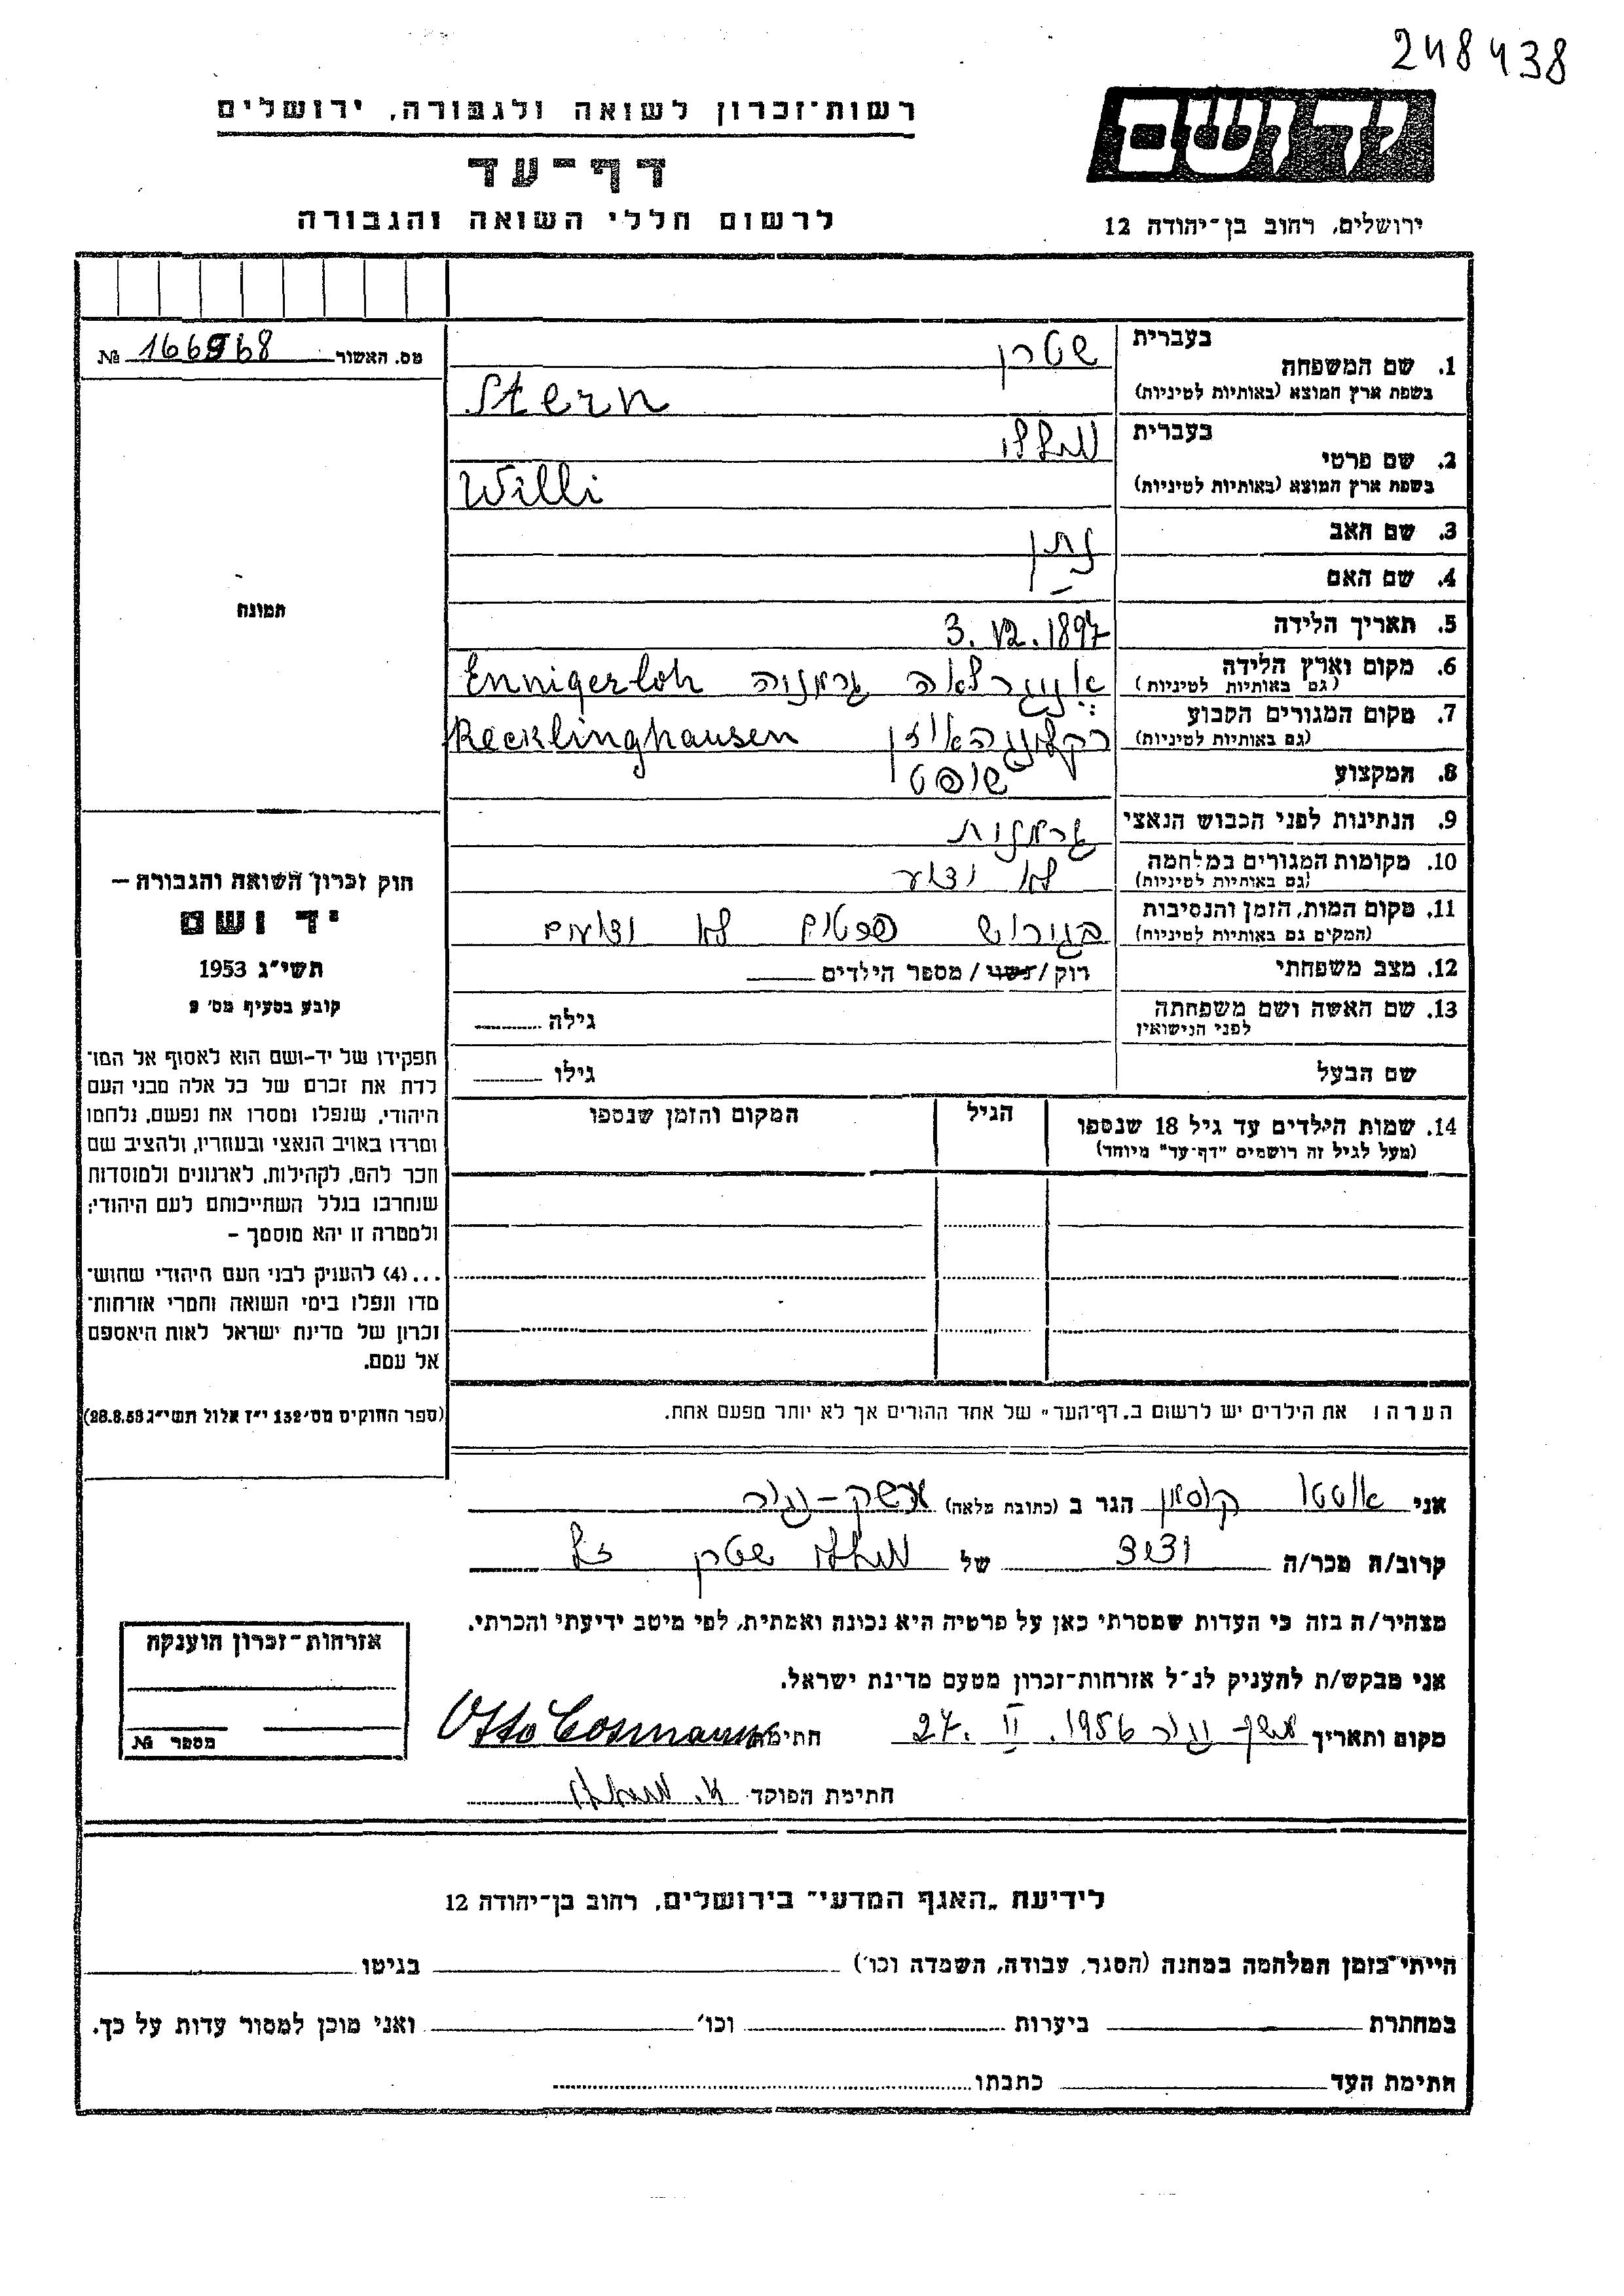 248438
רשות־זכרון לשואה ולגבורה, ירושלים
דף־עד
לרשום חללי השואה והגבורה
יד ושם
ירושלים, רחוב בן־יהודה 12
מס. האשור 166968 №
בעברית שטרן
1. שם המשפחה
בשפת ארץ המוצא (באותיות לטיניות) Stern
בעברית ווילי
2. שם פרטי
בשפת ארץ המוצא (באותיות לטיניות) Willi
3. שם האב נתן
4. שם האם –
5. תאריך הלידה 3. 12. 1897
6. מקום וארץ הלידה
(גם באותיות לטיניות) אניגרלאה גרמניה Ennigerloh
7. מקום המגורים הקבוע
(גם באותיות לטיניות) רקלינגהאוזן Recklinghausen
8. המקצוע שופט
9. הנתינות לפני הכבוש הנאצי גרמנית
10. מקומות המגורים במלחמה
(גם באותיות לטיניות) לא ידוע
11. מקום המות, הזמן והנסיבות
(המקים גם באותיות לטיניות) בגירוש פרטים לא ידועים
12. מצב משפחתי רוק / נשוי / מספר הילדים
13. שם האשה ושם משפחתה
לפני הנישואין
גילה
שם הבעל גילו
14. שמות הילדים עד גיל 18 שנספו
(מעל לגיל זה רושמים "דף־עד" מיוחד)
הגיל
המקום והזמן שנספו
תמונה
חוק זכרון השואה והגבורה –
יד ושם
תשי"ג 1953
קובע בסעיף מס' 2
תפקידו של יד-ושם הוא לאסוף אל המו־
לדת את זכרם של כל אלה מבני העם
היהודי, שנפלו ומסרו את נפשם, נלחמו
ומרדו באויב הנאצי ובעוזריו, ולהציב שם
וזכר להם, לקהילות, לארגונים ולמוסדות
שנחרבו בגלל השתייכותם לעם היהודי;
ולמטרה זו יהא מוסמך –
...(4) להעניק לבני העם היהודי שהוש־
מדו ונפלו בימי השואה והמרי אזרחות־
זכרון של מדינת ישראל לאות היאספם
אל עמם.
(ספר החוקים מס' 132 י"ז אלול תשי"ג 28.8.53)
הערה: את הילדים יש לרשום ב„דף־העד" של אחד ההורים אך לא יותר מפעם אחת.
אני אוטו קוסמן הגר ב (כתובת מלאה) משק-יגור
קרוב/ה מכר/ה ידיד של ווילי שטרן ז"ל
מצהיר/ה בזה כי העדות שמסרתי כאן על פרטיה היא נכונה ואמתית, לפי מיטב ידיעתי והכרתי.
אני מבקש/ת להעניק לנ"ל אזרחות־זכרון מטעם מדינת ישראל.
מקום ותאריך משק יגור 27. II. 1956 חתימה Otto Cosmann
חתימת הפוקד
אזרחות־זכרון הוענקה
מספר №
לידיעת „האגף המדעי" בירושלים, רחוב בן־יהודה 12
הייתי בזמן המלחמה במחנה (הסגר, עבודה, השמדה וכו') בגיטו
במחתרת ביערות וכו' ואני מוכן למסור עדות על כך.
חתימת העד כתבתו